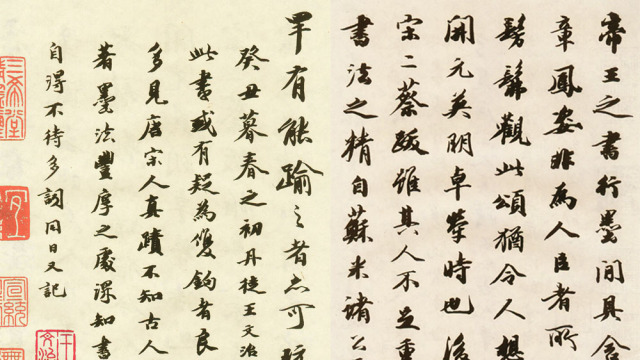 帝王之書行墨間具含
章鳳姿非為人臣者所
髣髴觀此頌猶令人想
開元英明卓犖時也後
宋二蔡跋雖其人不足重
書法之精自蘇米諸公
罕有能踰之者亦可玩
癸丑暮春之初丹徒王文治
此書或有疑為雙鉤者良
多見唐宋人真蹟不知古人
著墨法豐厚之處深知書
自得不待多詞同日又記
三希堂
宣統